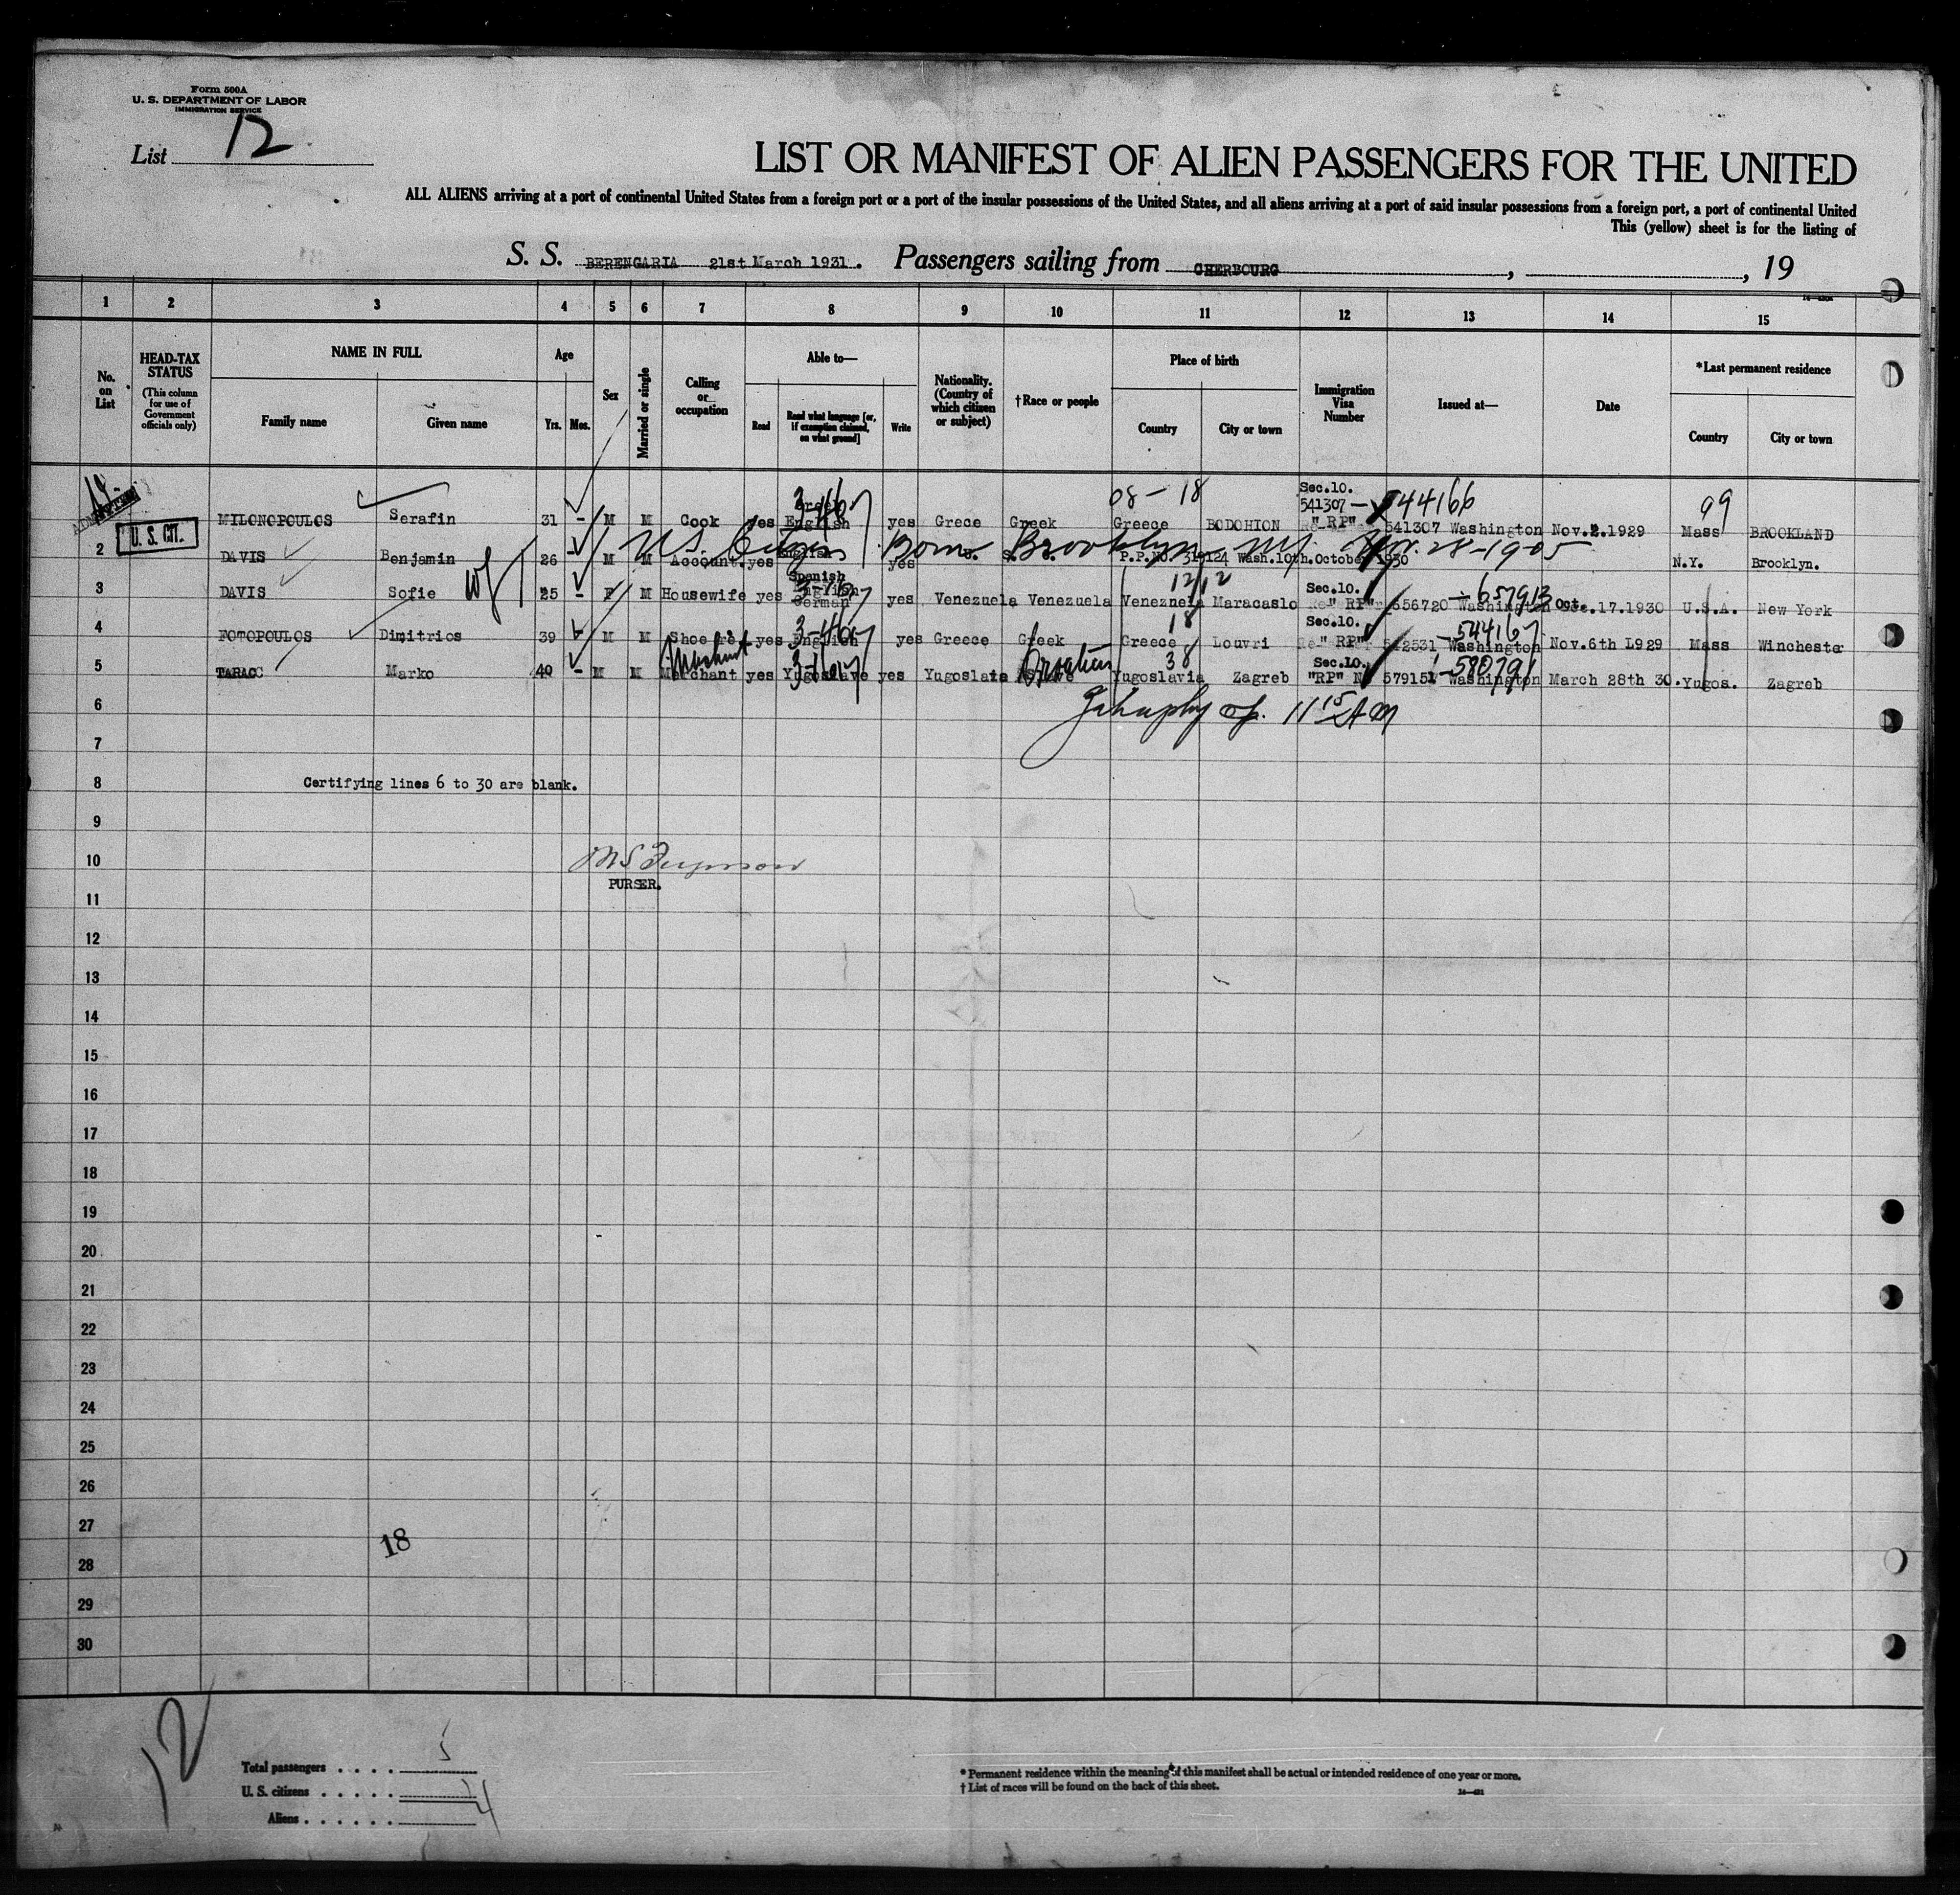 Form 500A
U. S. DEPARTMENT OF LABOR
IMMIGRATION SERVICE
List 12
LIST OR MANIFEST OF ALIEN PASSENGERS FOR THE UNITED
ALL ALIENS arriving at a port of continental United States from a foreign port or a port of the insular possessions of the United States, and all aliens arriving at a port of said insular possessions from a foreign port, a port of continental United
This (yellow) sheet is for the listing of
S. S. BERENGARIA 21st March 1931. Passengers sailing from CHERBOURG, , 19
1 2 3 4 5 6 7 8 9 10 11 12 13 14 15
No. on List
HEAD-TAX STATUS
(This column for use of Government officials only)
NAME IN FULL
Family name Given name
Age
Yrs. Mos.
Sex
Married or single
Calling or occupation
Able to—
Read
Read what language [or, if exemption claimed, on what ground]
Write
Nationality. (Country of which citizen or subject)
†Race or people
Place of birth
Country City or town
Immigration Visa Number
Issued at—
Date
*Last permanent residence
Country City or town
08 - 18 Sec.10. 541307 - 544166 99
MILONOPOULOS Serafin 31 - M M Cook yes English yes Grece Greek Greece BODOHION "RP" 541307 Washington Nov.2.1929 Mass BROOKLAND
U. S. CIT.
US Citizen Born Brooklyn
2 DAVIS Benjamin 26 - M M Account. yes yes U. S. P.P.No. 319124 Wash.10th.October 1930 N.Y. Brooklyn.
Spanish 12/12 Sec.10. - 657913
3 DAVIS Sofie wf 25 - F M Housewife yes German yes Venezuela Venezuela Venezuela Maracaslo "RP" 656720 Washington Oct.17.1930 U.S.A. New York
18 Sec.10. - 544167
4 FOTOPOULOS Dimitrios 39 - M M Shoe yes English yes Greece Greek Greece Louvri "RP" 542531 Washington Nov.6th L929 Mass Winchester
Merchant Croatian 38 Sec.10. - 580791
5 TARACC Marko 40 - M M Merchant yes Yugoslave yes Yugoslata Yugoslavia Zagreb "RP" N 579151 Washington March 28th 30. Yugos. Zagreb
6
11 15 AM
7
8 Certifying lines 6 to 30 are blank.
9
10
PURSER.
11
12
13
14
15
16
17
18
19
20
21
22
23
24
25
26
27
18
28
29
30
12
Total passengers . . . . 5
U. S. citizens . . . . . 1
Aliens . . . . . . 4
* Permanent residence within the meaning of this manifest shall be actual or intended residence of one year or more.
† List of races will be found on the back of this sheet.